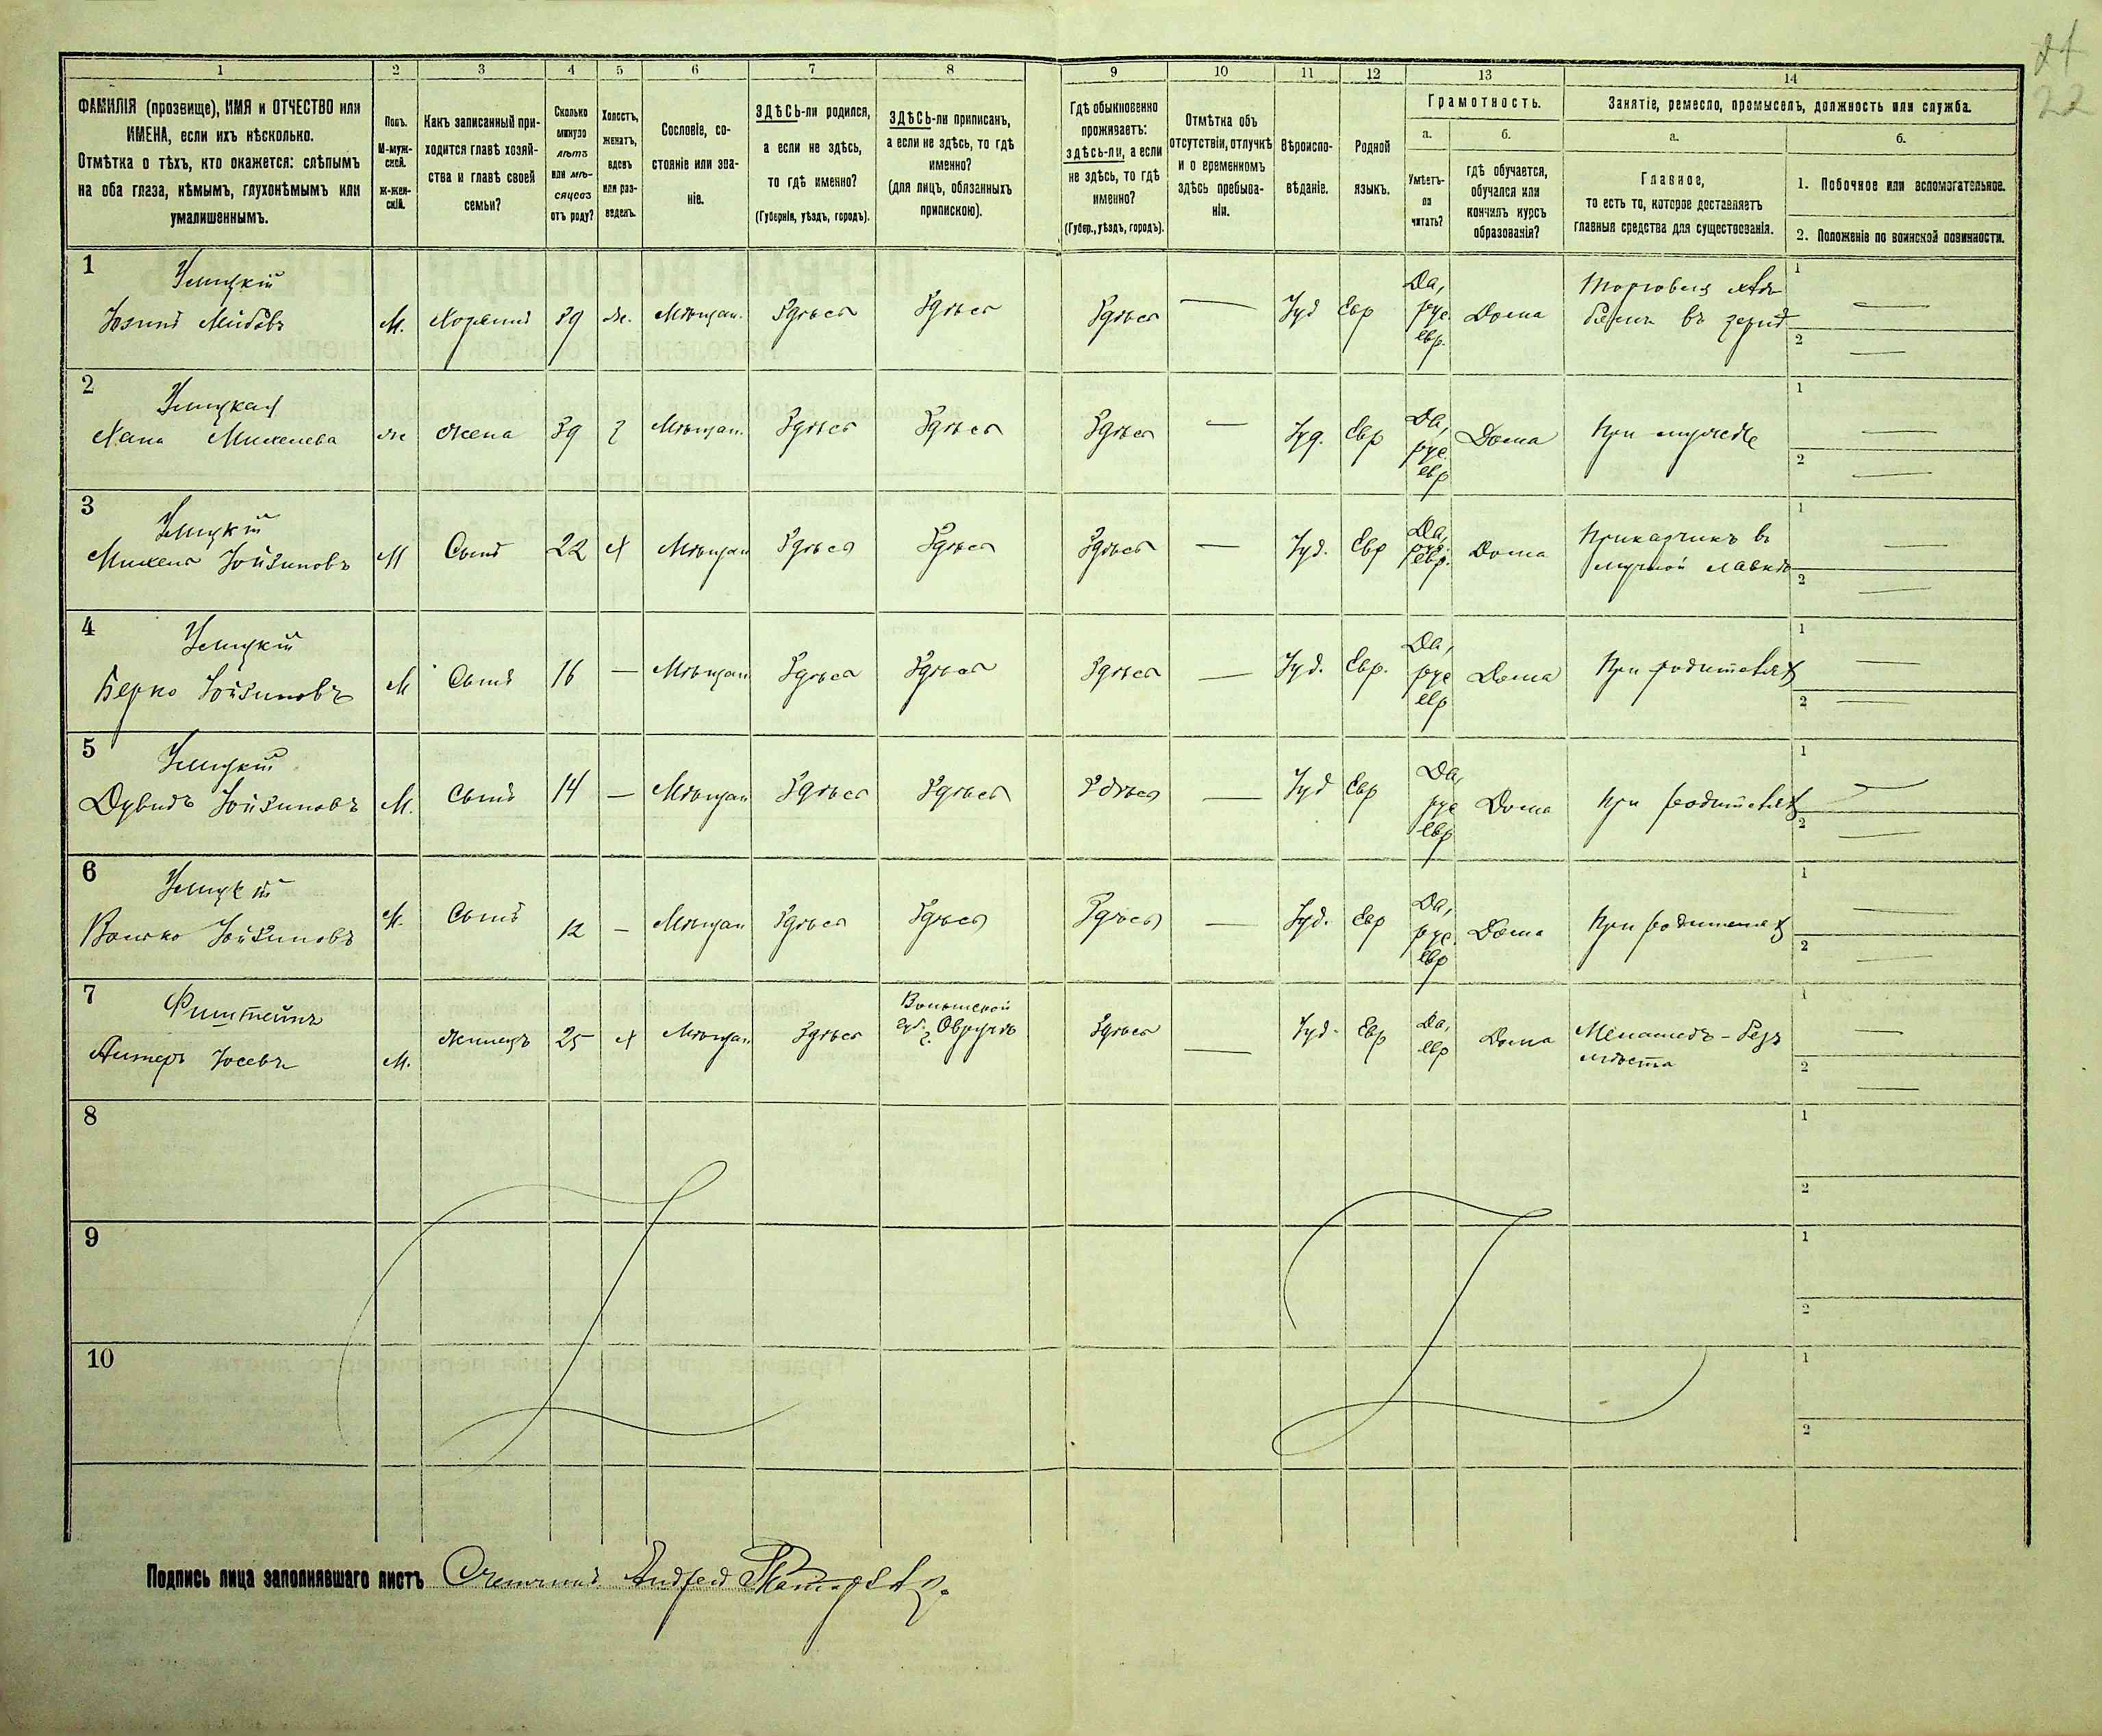 21
22
1 2 3 4 5 6 7 8 9 10 11 12 13 14
ФАМИЛІЯ (прозвище), ИМЯ и ОТЧЕСТВО или
ИМЕНА, если ихъ нѣсколько.
Отмѣтка о тѣхъ, кто окажется: слѣпымъ
на оба глаза, нѣмымъ, глухонѣмымъ или
умалишеннымъ.
Полъ.
М-муж-
ской.
Ж-жен-
скій.
Какъ записанный при-
ходится главѣ хозяй-
ства и главѣ своей
семьи?
Сколько
минуло
лѣтъ
или мѣ-
сяцевъ
отъ роду?
Холостъ,
женатъ,
вдовъ
или раз-
веденъ.
Сословіе, со-
стояніе или зва-
ніе.
ЗДѢСЬ-ли родился,
а если не здѣсь,
то гдѣ именно?
(Губернія, уѣздъ, городъ).
ЗДѢСЬ-ли приписанъ,
а если не здѣсь, то гдѣ
именно?
(для лицъ, обязанныхъ
припискою).
Гдѣ обыкновенно
проживаетъ:
здѣсь-ли, а если
не здѣсь, то гдѣ
именно?
(Губер., уѣздъ, городъ).
Отмѣтка объ
отсутствіи, отлучкѣ
и о временномъ
здѣсь пребыва-
ніи.
Вѣроиспо-
вѣданіе.
Родной
языкъ.
Грамотность.
а.
Умѣетъ-
ли
читать?
б.
гдѣ обучается,
обучался или
кончилъ курсъ
образованія?
Занятіе, ремесло, промыселъ, должность или служба.
а.
Главное,
то есть то, которое доставляетъ
главныя средства для существованія.
б.
1. Побочное или вспомогательное.
2. Положеніе по воинской повинности.
1
М. Хозяинъ 39 ж. Мѣщан. Здѣсь Здѣсь Здѣсь — Іуд Евр Да, рус. евр. Дома
1 —
2 —
2
Хана Михелева ж жена 39 з Мѣщан. Здѣсь Здѣсь Здѣсь — Іуд. Евр Да, рус. евр Дома При мужѣ
1 —
2 —
3
Михель Іойзиновъ М Сынъ 22 х Мѣщан Здѣсь Здѣсь Здѣсь — Іуд. Евр Да, рус. евр. Дома Приказчикъ въ
мучной лавкѣ
1 —
2 —
4
Берко Іойзиновъ М Сынъ 16 — Мѣщан Здѣсь Здѣсь Здѣсь — Іуд. Евр. Да, рус евр Дома При родителяхъ
1 —
2 —
5
Дувидъ Іойзиновъ М. Сынъ 14 — Мѣщан Здѣсь Здѣсь Здѣсь — Іуд Евр Да, рус евр Дома При родителяхъ
1 —
2 —
6
Волько Іойзиновъ М. Сынъ 12 — Мѣщан Здѣсь Здѣсь Здѣсь — Іуд. Евр Да, рус. евр Дома При родителяхъ
1 —
2 —
7
Фитштейнъ
Алтеръ Іосевъ М. Жилецъ 25 х Мѣщан Здѣсь Волынской
губ. г. Овручъ Здѣсь — Іуд. Евр Да, евр Дома Меламедъ - безъ
мѣста
1 —
2 —
8
1
2
9
1
2
10
1
2
Подпись лица заполнявшаго листъ Счетчикъ Андрей